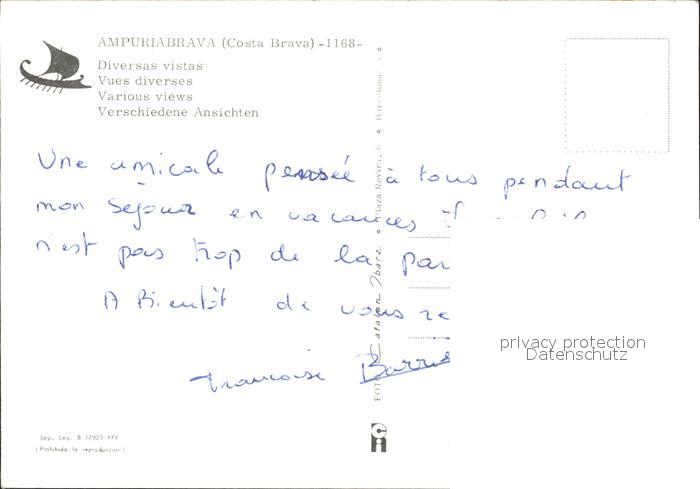 AMPURIABRAVA (Costa Brava) -1168-
Diversas vistas
Vues diverses
Various views
Verschiedene Ansichten
Une amicale pensée à tous pendant
mon séjour en vacances
n'est pas trop de la par
A Bientôt de vous re
Francoise Barrus
privacy protection
Datenschutz
FOT Catalan Ibarz Plaza Rovira, 6 Barcelona
Dep. Leg. B. 12920-XXV
(Prohibida la reproduccion)